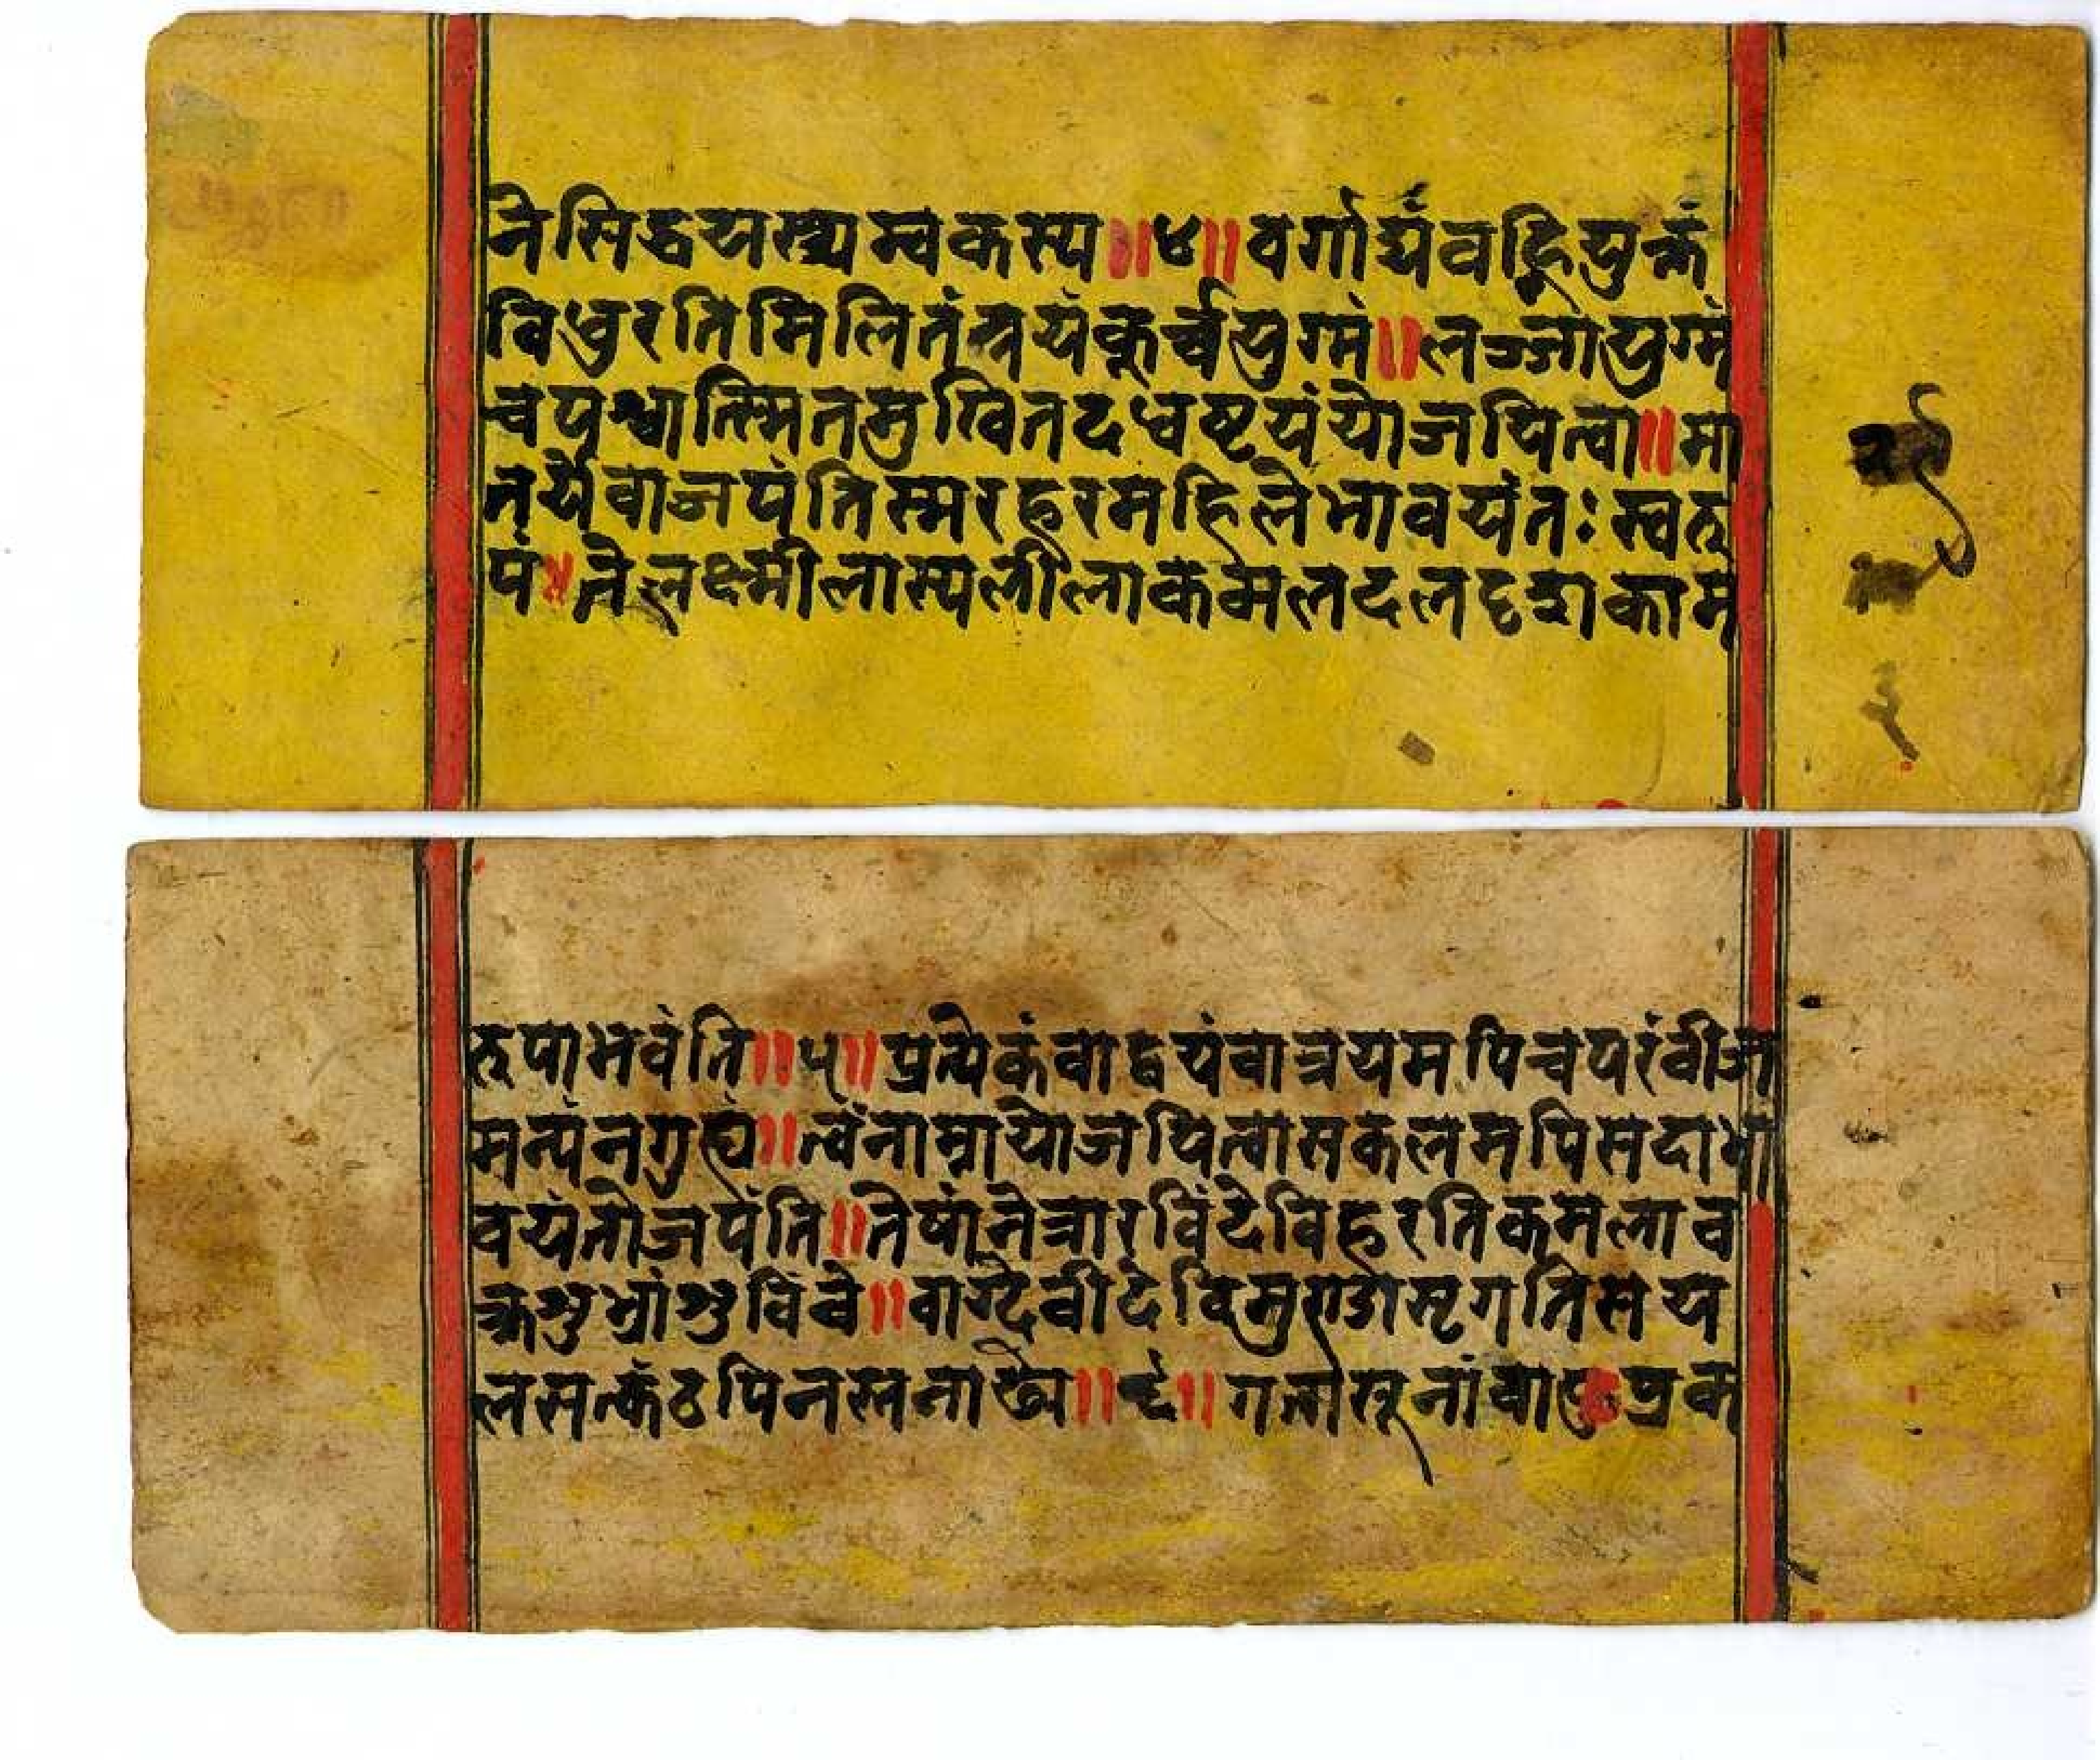 ने सिद्धयस्त्र्यम्वकस्य ॥ ४ ॥ वर्गाद्यंवह्नियुक्तं
विधुरतिमिलितंत्रयंकूर्च्चयुग्मं ॥ लज्जायुग्मं
चपश्चात्स्मितमुखितदधष्टयंयोजयित्वा ॥ मा
तर्येवाजपंतिस्मरहरमहिलेभावयंतः स्वरू
पं ॥ तेलक्ष्मीलास्यलीलाकमलदलदृशः काम
रूपाभवंति ॥ ५ ॥ प्रत्येकंवाद्वयंवात्रयमपिचपरंवीज
मत्यंतगुह्यं ॥ त्वंनाम्नायोजयित्वासकलमपिसदाभा
वयंतोजपंति ॥ तेषांनेत्रारविंदेविहरतिकमलाव
क्त्रशुभ्रांशुविंवे ॥ वाग्देवीदेविमुण्डस्रगतिसय
लसत्कंठपिनस्तनाढ्ये ॥ ६ ॥ गतासूनांवाहुप्रक